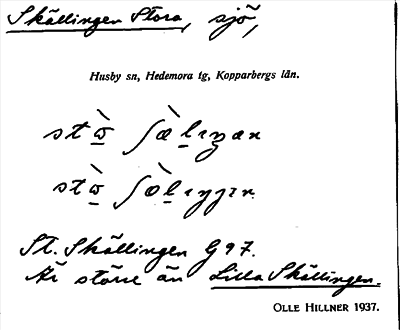 Skällingen Stora, sjö,
Husby sn, Hedemora tg, Kopparbergs län.
St. Skällingen G 97.
Är större än Lilla Skällingen.
OLLE HILLNER 1937.